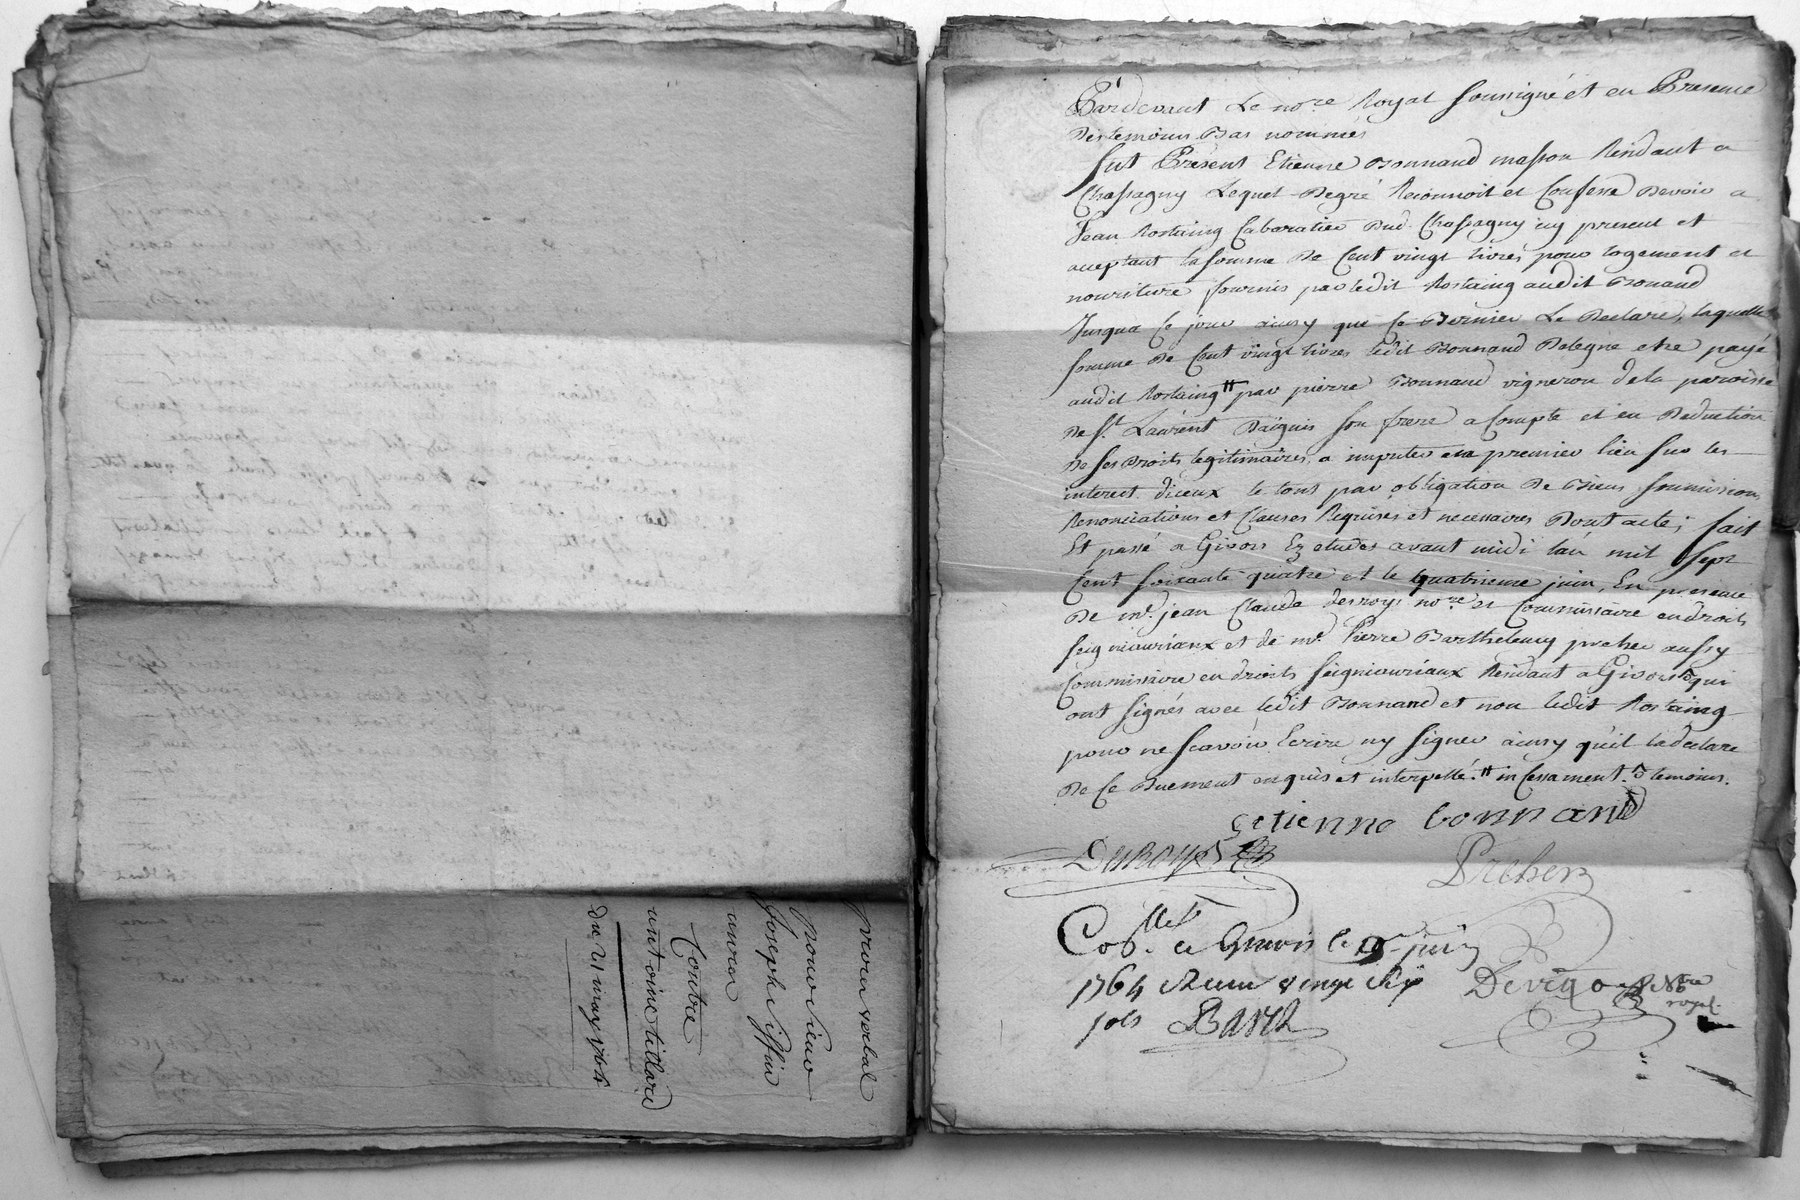 procu verbal
pour sieur
Joseph
Contre
antoine tillard
du 21 may 1764
Pardevant Le no.re Royal soussigné et en Presence
Des temoins Bas nommés
fut Présent Etienne Bonnand masson Residant a
Chassagny Lequel De gré Reconnoit et Confesse Devoir a
Jean Rostaing Cabaratier Dud. Chassagny icy present et
acceptant la somme De Cent vingt livres pour logement et
nouriture fournis par ledit Rostaing audit Bonand
Jusqua Ce jour ainsy que Ce Dernier Le Declare, laquelle
somme De Cent vingt livres ledit Bonnand Delegue etre payé
audit Rostaing # par pierre Bonnand vigneron de la paroisse
De St. Laurent Daignis son frere a Compte et en Deduction
De ses Droits legitimaires, a imputer en premier lieu sur les
interest diceux le tout par obligation De Biens soumissions
Renonciations et Clauses Requises et necessaires Dont acte; fait
Et passé a Givors Ez etudes avant midi lan mil sept
Cent soixante quatre et le quatrieme juin, En presence
De me. jean Claude desroys no.re et Commissaire en droits
seigneuriaux et de me. Pierre Barthelemy precher aussy
Commissaire en droits seigniauriaux Residant a Givors qui
ont signés avec ledit Bonnand et non ledit Rostaing
pour ne scavoir Ecrire ny signer ainsy quil la declaré
De Ce Duement enquis et interpellé. # incessament. temoins.
etienne bonnand
Precher
Co.lle a Givors le juin
1764 Recu vingt six Devigo Nre
sols Barth royal